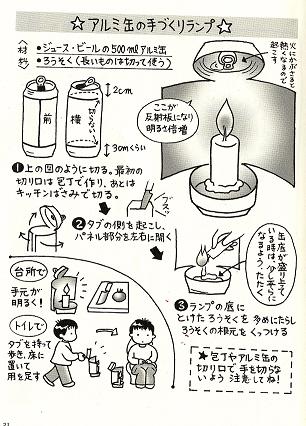 ☆アルミ缶の手づくりランプ☆
〈材料〉
・ジュース・ビールの500mlアルミ缶
・ろうそく(長いものは切って使う)
火にかぶさって
熱くなるので
起こす
2cm
前
横
切らない
30mmくらい
ここが
反射板になり
明るさ倍増
❶上の図のように切る。最初の
切り口は包丁で作り、あとは
キッチンばさみで切る。
ブスッ
❷タブの側を起こし、
パネル部分を左右に開く
缶底が盛り上て
いる時は、少し平らに
なるよう、たたく
台所で
手元が
明るく!
トイレで
タブを持って
歩き、床に
置いて
用を足す
❸ランプの底に
とけたろうそくを多めにたらし
ろうそくの根元をくっつける
★包丁やアルミ缶の
切り口で手を切らな
いよう注意してね!
21